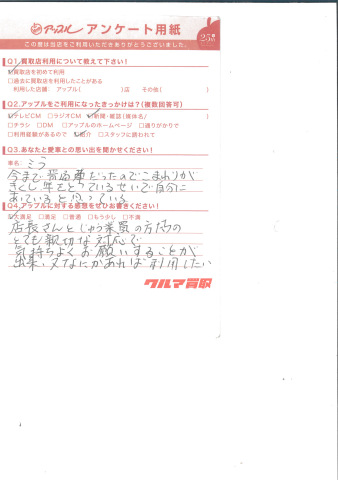 アップル アンケート用紙
25周年
この度は当店をご利用いただきありがとうございました。
Q1.買取店利用について教えて下さい!
☑買取店を初めて利用
□過去に買取店を利用したことがある
利用した店舗: アップル( )店 その他( )
Q2.アップルをご利用になったきっかけは?(複数回答可)
☑テレビCM □ラジオCM ☑新聞・雑誌(媒体名/ )
□チラシ □DM □アップルのホームページ □通りがかりで
□利用経験があるので ☑紹介 □スタッフに誘われて
Q3.あなたと愛車との思い出を聞かせてください!
車名: ミラ
今まで 車だったのでこまわりが
きくし年をとっているせいで自分に
あっていると思っている
Q4.アップルに対する感想をぜひお書きください!
☑大満足 □満足 □普通 □もう少し □不満
店長さんとじゅう業員の方
とても親切な対応で
気持ちよくお願いすることが
出来、又なにかあれば利用したい
クルマ買取